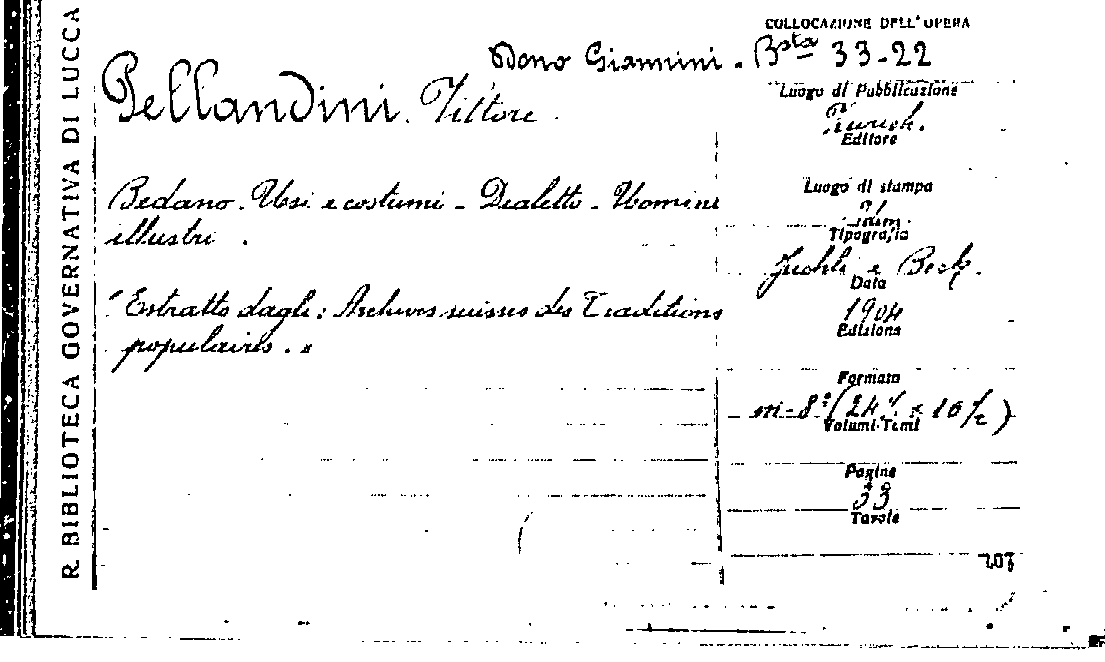 R. BIBLIOTECA GOVERNATIVA DI LUCCA
COLLOCAZIONE DELL'OPERA
Dono Giannini. Bsta 33-22
Pellandini. Vittore.
Luogo di Pubblicazione
Zurich.
Editore
Bedano. Usi e costumi - Dialetto - Uomini
illustri.
Luogo di stampa
Idem.
Tipografia
Juchli e Beck.
Data
"Estratto dagli: Archives suisses des Traditions
populaires."
1904
Edizione
Formato
in-8° (24 × 16
Volumi-Tomi
Pagine
33
Tavole